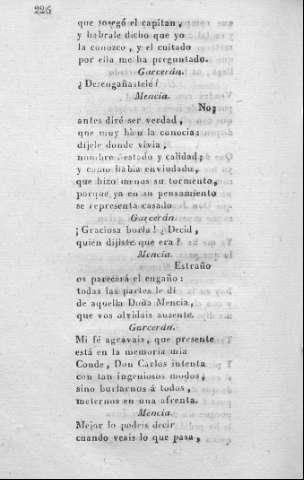 226
que sosegó el capitan,
y habrale dicho que yo
la conozco, y el cuitado
por ella me ha preguntado.
Garcerán.
¿Desengañastelé?
Mencía.
No;
antes diré ser verdad,
que muy bien la conocia;
díjele donde vivia,
nombre, estado y calidad;
y como habia enviudado,
que hizo menos su tormento,
porque ya en su pensamiento
se representa casado
Garcerán.
¡Graciosa burla! ¿Decid,
quién dijiste que era?
Mencía.
Estraño
os parecerá el engaño:
todas las partes le dí
de aquella Doña Mencía,
que vos olvidais ausente.
Garcerán.
Mi fé agravais, que presente
está en la memoria mia
Conde, Don Carlos intenta
con tan ingeniosos modos,
sino burlarnos á todos,
meternos en una afrenta.
Mencía.
Mejor lo podreis decir
cuando veais lo que pasa,